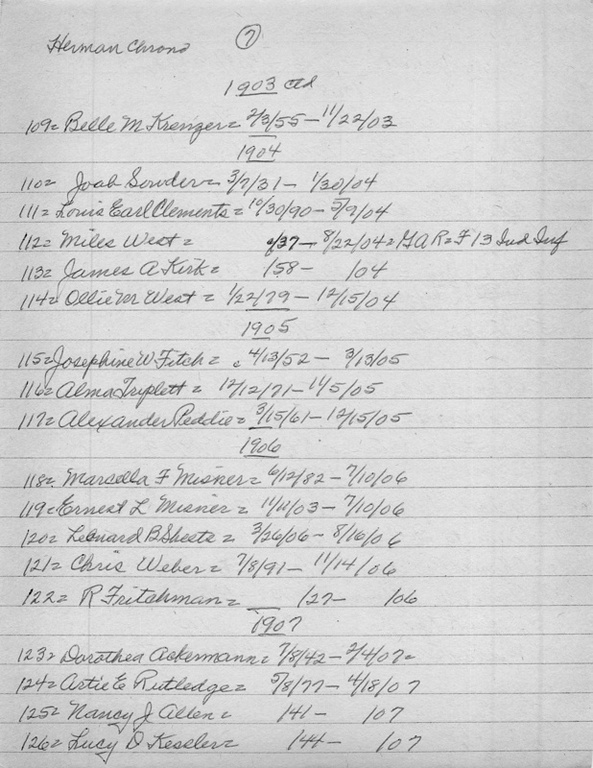 Herman Chrono ⑦
1903 ctd
109= Belle M Krenzer= 2/3/55 - 11/22/03
1904
110= Joab Sowder= 3/7/31 - 1/30/04
111= Louis Earl Clements = 10/30/90 - 5/9/04
112= Miles West = c/37 - 8/22/04 = GAR = F 13 Ind Inf
113= James A Kirk = /58 - /04
114= Ollie M West = 1/22/79 - 12/15/04
1905
115= Josephine W Fitch = c 4/13/52 - 3/13/05
116= Alma Triplett = 12/12/71 - 11/5/05
117= Alexander Peddie = 3/15/61 - 12/15/05
1906
118= Marsella F Misner = 6/12/82 - 7/10/06
119= Ernest L Misner = 11/11/03 - 7/10/06
120= Leonard B Sheets = 3/26/06 - 8/16/06
121= Chris Weber = 7/8/91 - 11/14/06
122= R Fritchman = /27 - /06
1907
123= Dorothea Ackermann = 7/8/42 - 2/4/07 =
124= Artie E Rutledge = 5/8/77 - 4/18/07
125= Nancy J Allen = /41 - /07
126= Lucy D Kesler = /44 - /07